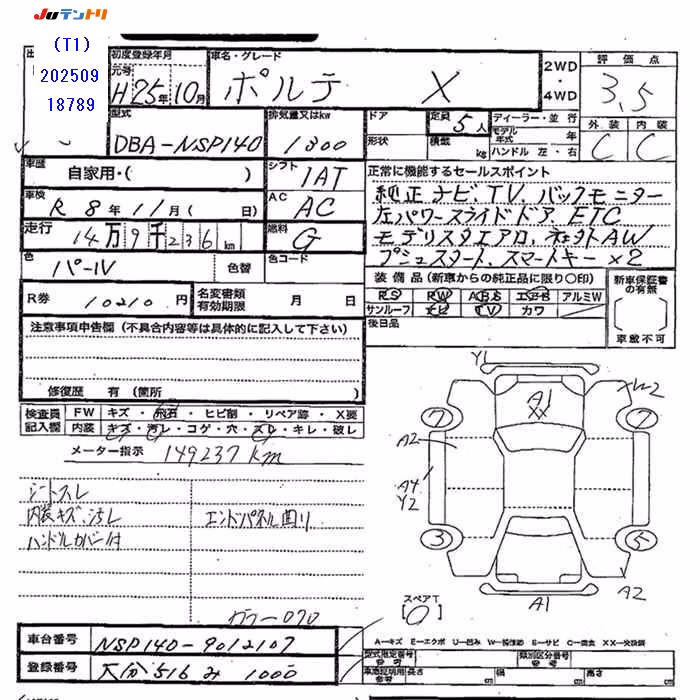 Juテントリ
(T1)
202509
18789
初度登録年月
元号
H 25年 10月
車名・グレード
ポルテ X
2WD
・
4WD
評価点
3,5
外装 内装
C C
型式
DBA-NSP140
排気量又はkw
1300
ドア
形状
定員 5人
積載 kg
ディーラー・並行
モデル年式 年
ハンドル 左・右
車歴
自家用・( )
シフト
IAT
正常に機能するセールスポイント
純正ナビ、TV、バックモニター
左パワースライドドア、ETC
モデリスタエアロ、社外AW
プッシュスタート、スマートキー×2
車検
R 8年 11月 ( 日)
AC
AC
走行
14万9千236km
燃料
G
色
パール
色替
色コード
装備品 (新車からの純正品に限り〇印)
PS PW ABS エアB アルミW
サンルーフ ナビ TV カワ
後日品
新車保証書
の有無
車載不可
R券
10210円
名変書類
有効期限
月 日
注意事項申告欄 (不具合内容等は具体的に記入して下さい)
修復歴 有 (箇所
検査員
記入欄
FW キズ・飛石・ヒビ割・リペア跡・X要
内装 キズ・汚レ・コゲ・穴・スレ・キレ・破レ
メーター指示 149237km
シートスレ
内装キズ、汚レ
ハンドルカバー付
エンドパネル曲り
カラー070
Y1
A1
XX
7
7
A2
A4
Y2
3
5
A2
A1
スペアT
[0]
A―キズ E―エクボ U―凹み W―補修跡 S―サビ C―腐食 XX―交換済
車台番号
NSP140-9012107
登録番号
大分 516 み 1000
型式指定番号
参考
類別区分番号
参考
車庫証明用
参考
長さ cm
幅 cm
高さ cm